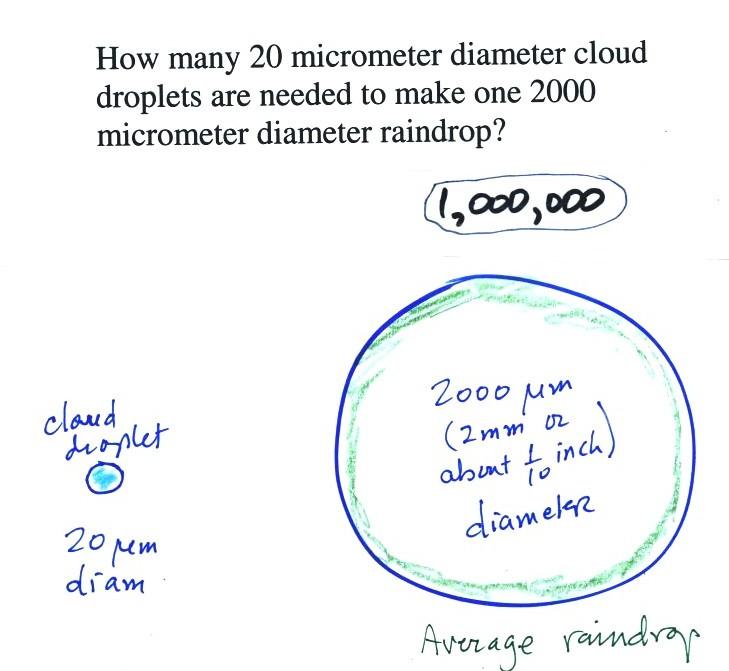 How many 20 micrometer diameter cloud
droplets are needed to make one 2000
micrometer diameter raindrop?
1,000,000
2000 μm
(2mm or
about 1/10 inch)
diameter
cloud
droplet
20 μm
diam
Average raindrop